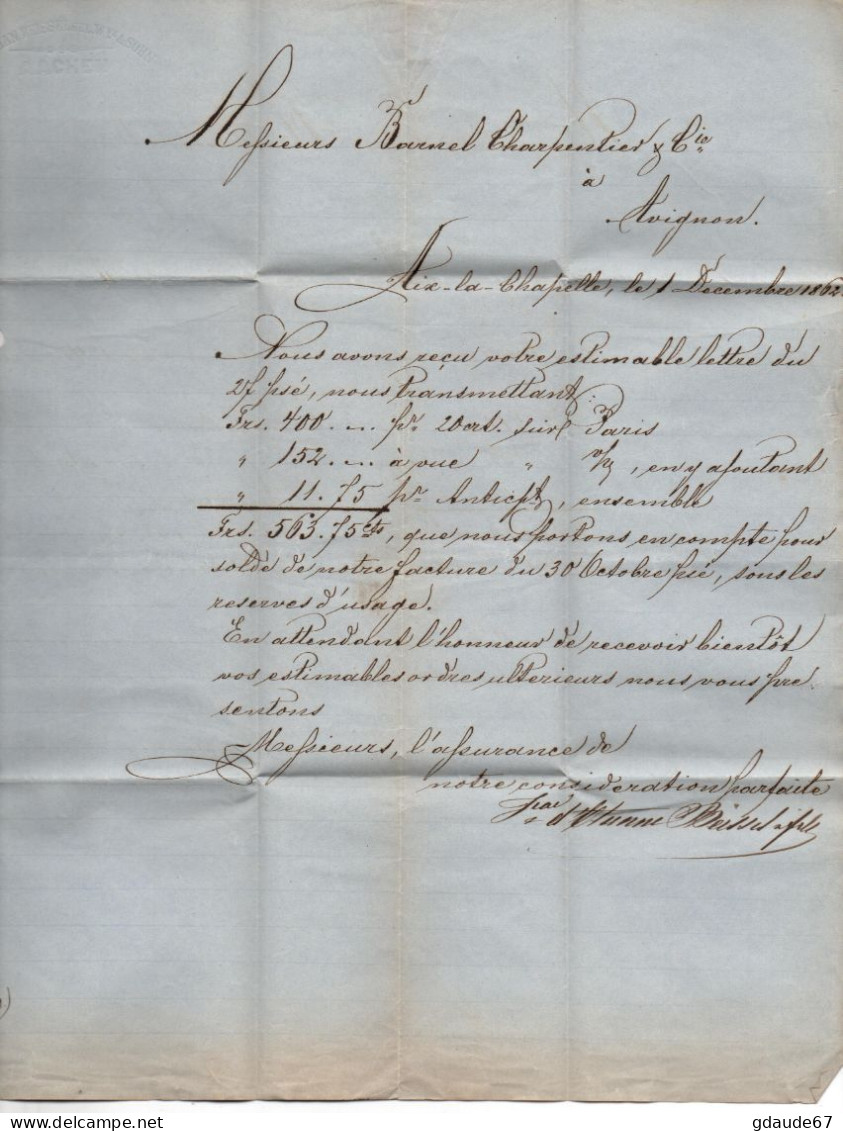 Messieurs Barnel Charpentier & Cie
à
Avignon.
Aix-la-Chapelle, le 1 Decembre 1862
Nous avons reçu votre estimable lettre du
27 psé, nous transmettant:
Frs. 400. ... pr. 20 ct. sur Paris
" 152. ... à vue " , en y ajoutant
" 11.75 pr , ensemble
Frs. 563.75 cts, que nous portons en compte pour
solde de notre facture du 30 Octobre psé, sous les
reserves d'usage.
En attendant l'honneur de recevoir bientôt
vos estimables ordres ulterieurs nous vous pre-
sentons
Messieurs, l'assurance de
notre consideration parfaite
gdaude67